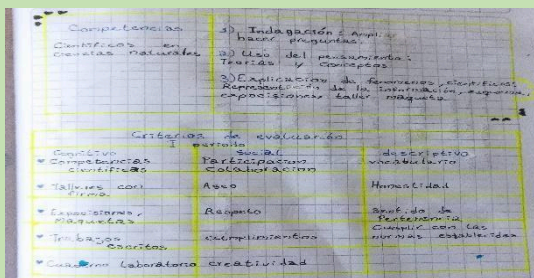 Competencias
Científicas en
ciencias naturales
1), Indagación: Ampliar
hacer preguntas.
2) Uso del pensamiento:
Teorías y Conceptos.
3) Explicación de fenómenos, científicos:
Representación de la información, esquema,
exposiciones taller maqueta.
Criterios de evaluación
I periodo
Cognitivo Social descriptivo
Competencias científicas Participación Colaboración vocabulario
Talleres con firma. Aseo Honestidad
Exposiciones, Maquetas Respeto Sentido de Pertenencia
Trabajos escritos cumplimientos Cumplir con las normas establecidas
Cuaderno laboratorio creatividad